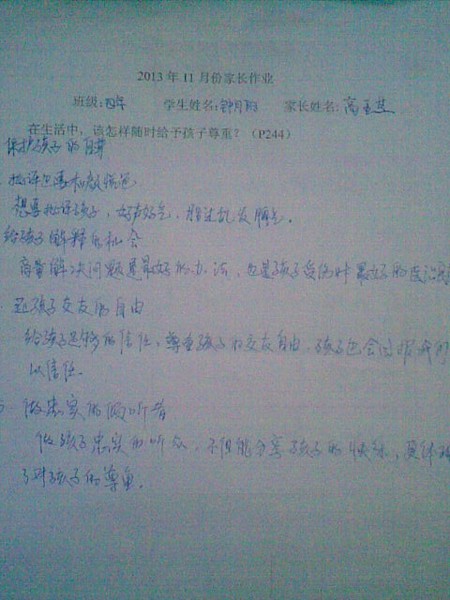 2013年11月份家长作业
班级:四年 学生姓名:钟月 家长姓名:高玉
在生活中，该怎样随时给予孩子尊重？（P244）
保护孩子的自尊
批评也要和颜悦色
想要批评孩子，好声好气，别过乱发脾气.
给孩子解释的机会
商量解决问题是最好的办法，也是孩子受伤时最好的医治
孩子交友的自由
给孩子足够的信任，尊重孩子的交友自由，孩子也会
以信任.
做忠实的倾听者
做孩子忠实的听众，不但能分享孩子的快乐，更体
了对孩子的尊重.